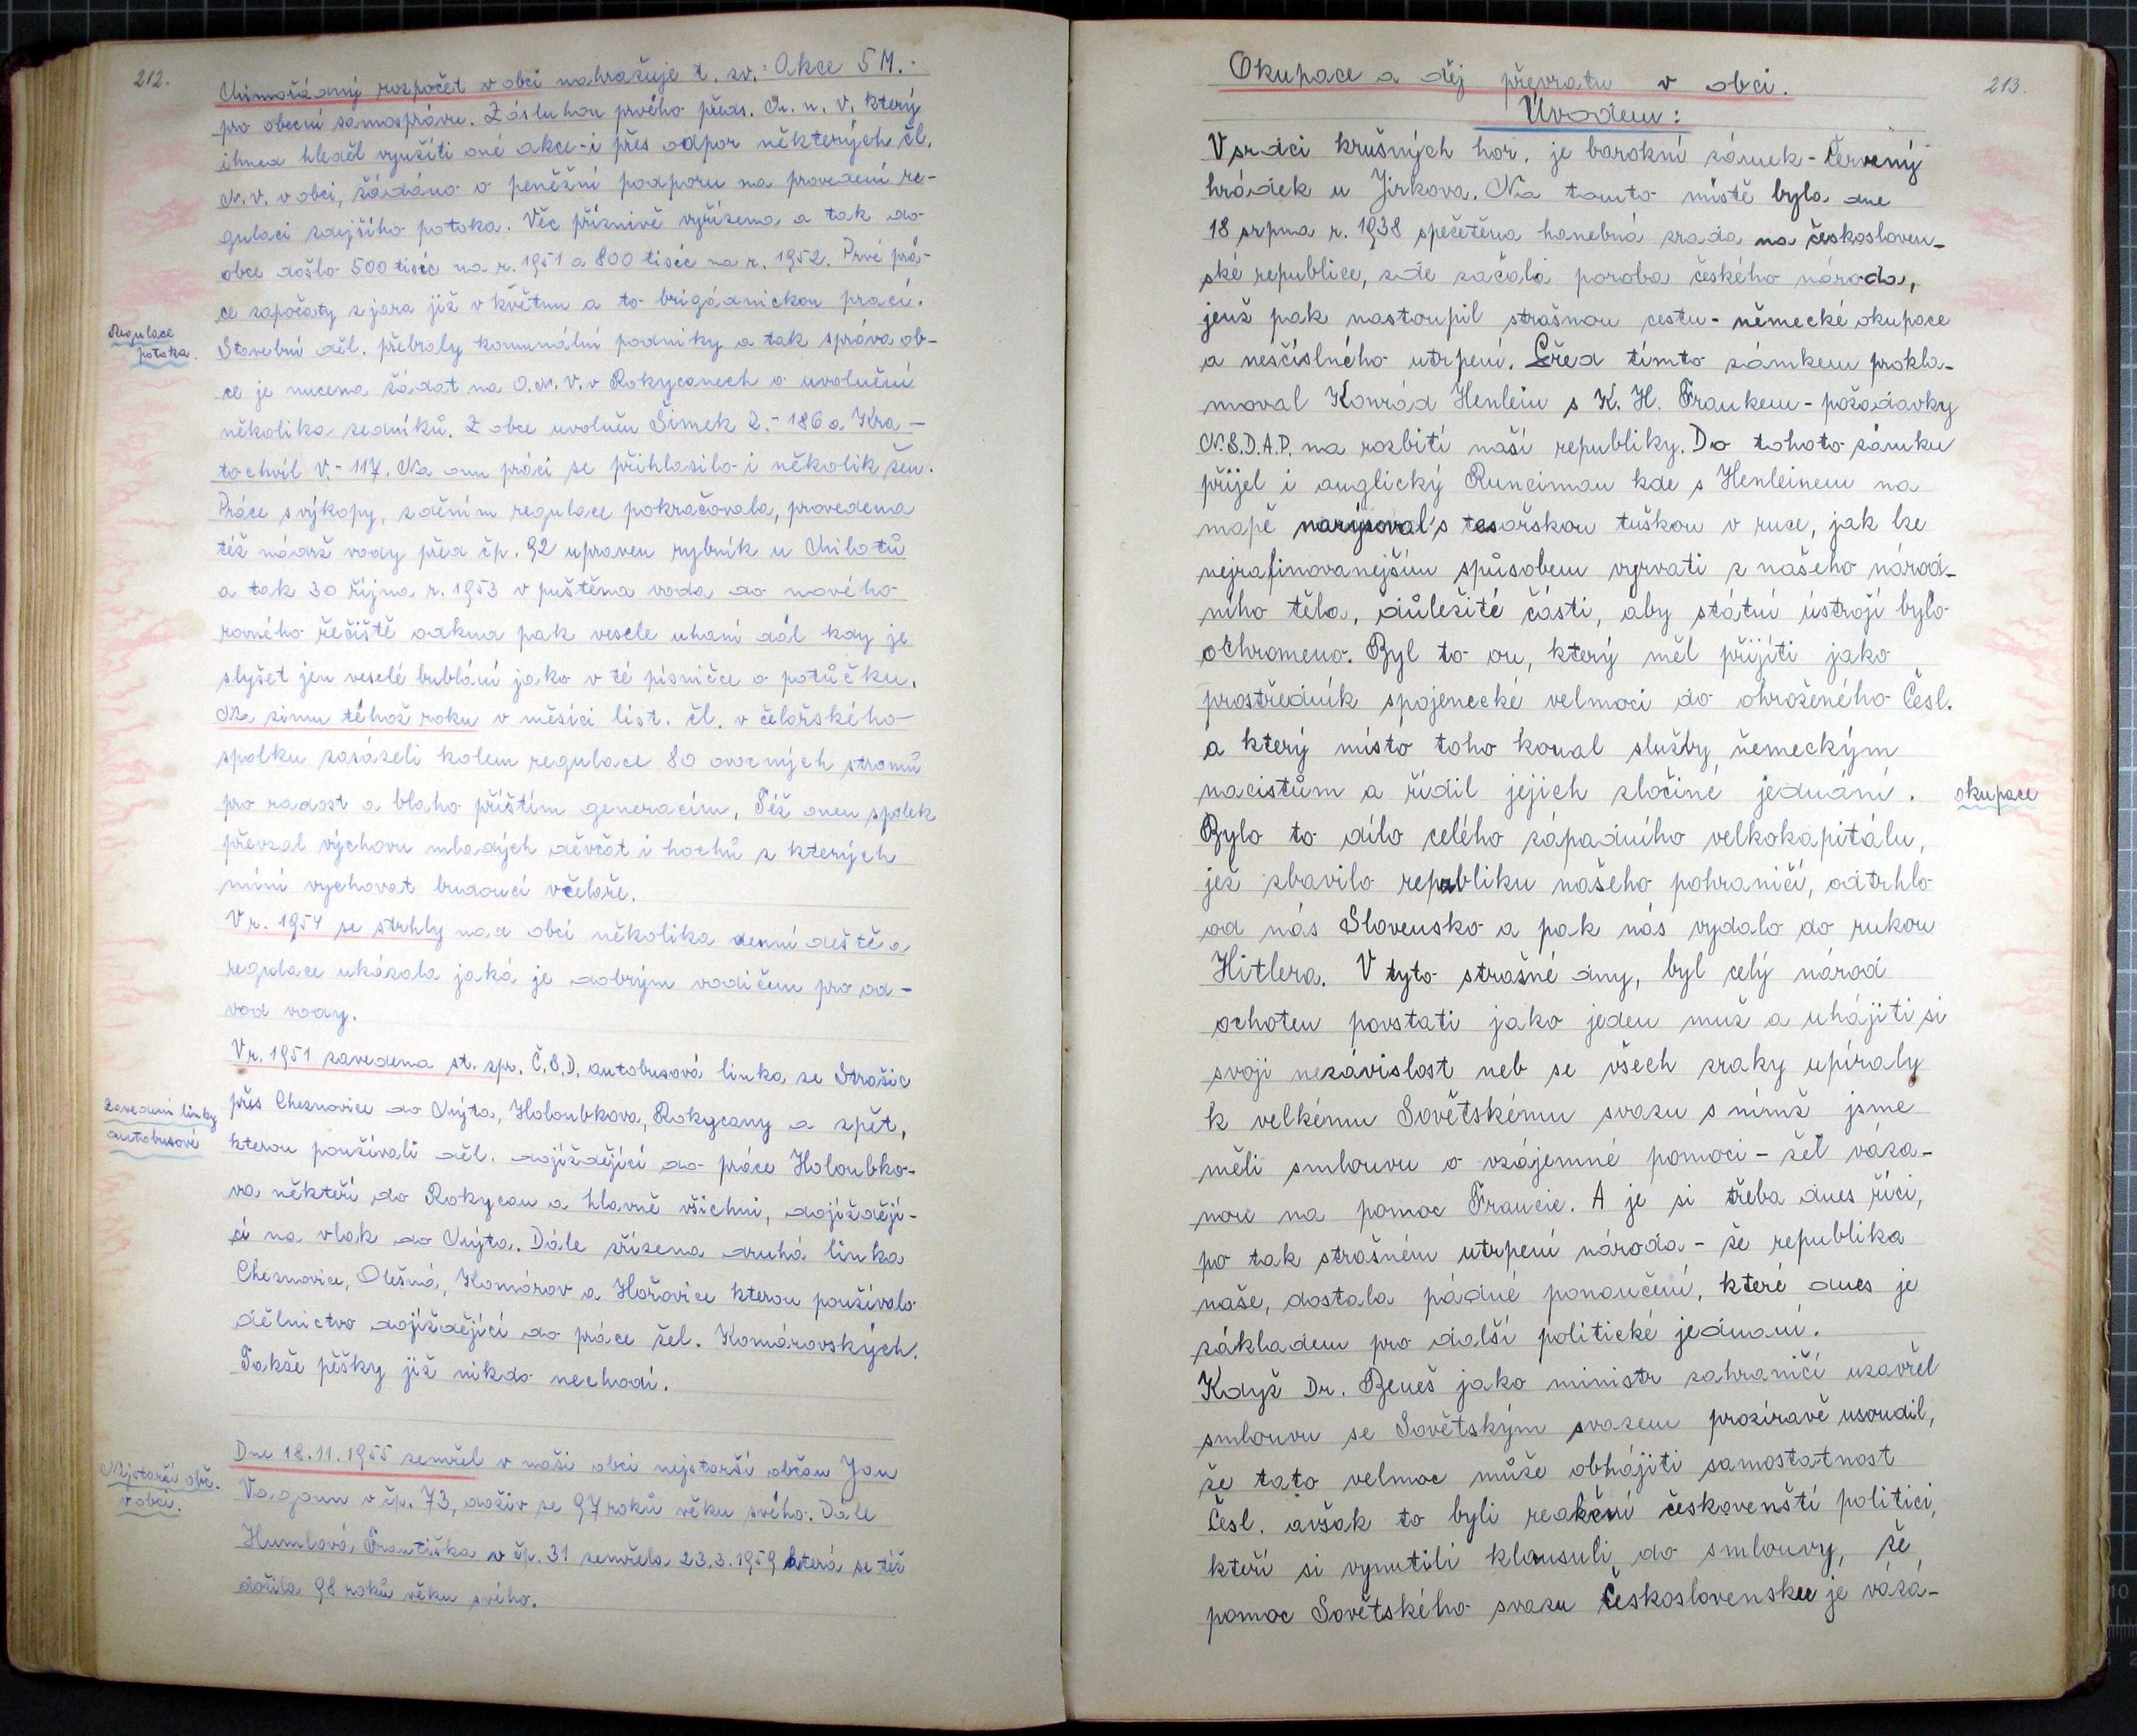 212.
Mimořádný rozpočet v obci nahražuje t. zv.: Akce 5 M.:
pro obecní samosprávu. Zásluhou prvého předs. M. n. V. který
ihned hleděl využíti oné akce - i přes odpor některých čl.
N. V. v obci, žádáno o peněžní podporu na provedení re-
gulaci zdejšího potoka. Věc příznivě vyřízena a tak do
obce došlo 500 tisíc na r. 1951 a 800 tisíc na r. 1952. Prvé prá-
ce započaty z jara již v květnu a to brigádnickou prací.
Regulace
potoka.
Stavební děl. přebraly komunální podniky a tak správa ob-
ce je nucena žádat na O. N. V. v Rokycanech o uvolnění
několika zedníků. Z obce uvolněn Šimek Z. - 186 a Kra -
tochvíl V. - 117. Na onu práci se přihlasilo i několik žen.
Práce s výkopy, zděním regulace pokračovala, provedena
též nádrž vody před čp. 92 upraven rybník u Milotů
a tak 30 října r. 1953 v puštěna voda do nového
rovného řečiště odkud pak vesele uhaní dál kdy je
slyšet jen veselé bublání jako v té písničce o potůčku.
Na zimu téhož roku v měsíci list. čl. v čelařského
spolku zasázeli kolem regulace 80 ovocných stromů
pro radost a blaho příštím generacím, Též onen spolek
převzal výchovu mladých děvčat i hochů z kterých
míní vychovat budoucí včelaře.
V r. 1954 se strhly nad obcí několika denní deště a
regulace ukázala jaká je dobrým vodičem pro od -
vod vody.
V r. 1951 zavedena st. spr. Č. S. D. autobusová linka ze Strašic
Zavedení linky
autobusové
přes Cheznovice do Mýta, Holoubkova, Rokycany a zpět,
kterou používali děl. dojíždějící do práce Holoubko-
va někteří do Rokycan a hlavně všichni, dojíždějí-
cí na vlak do Mýta. Dále zřízena druhá linka
Cheznovice, Olešná, Komárov a Hořovice kterou používalo
dělnictvo dojíždějící do práce žel. Komárovských.
Takže pěšky již nikdo nechodí.
Nejstarší obč.
v obci.
Dne 18. 11. 1955 zemřel v naší obci nejstarší občan Jan
v čp. 73, doživ se 97 roků věku svého. Dále
Humlová Františka v čp. 31 zemřela 23. 3. 1959 která se též
dožila 98 roků věku svého.
213.
Okupace a děj převratu v obci.
Úvodem:
V srdci krušných hor, je barokní zámek - Červený
hrádek u Jirkova. Na tomto místě byla dne
18 srpna r. 1938 spečetěna hanebná zrada na českosloven-
ské republice, zde začala poroba českého národa,
jenž pak nastoupil strašnou cestu - německé okupace
a nesčíslného utrpení. Před tímto zámkem prokla-
moval Konrád Henlein s K. H. Frankem - požadavky
N.S.D.A.P. na rozbití naší republiky. Do tohoto zámku
přijel i anglický Runciman kde s Henleinem na
mapě narýsoval's tesařskou tuškou v ruce, jak lze
nejrafinovanejším způsobem vyrvati z našeho národ-
ního těla, důležité části, aby státní ústrojí bylo
ochromeno. Byl to on, který měl přijíti jako
prostředník spojenecké velmoci do ohroženého Česl.
a který místo toho konal služby německým
nacistům a řídil jejich zločiné jednání.
okupace
Bylo to dílo celého západního velkokapitálu,
jež zbavilo republiku našeho pohraničí, odtrhlo
od nás Slovensko a pak nás vydalo do rukou
Hitlera. V tyto strašné dny, byl celý národ
ochoten povstati jako jeden muž a uhájiti si
svoji nezávislost neb se všech zraky upíraly
k velkému Sovětskému svazu s nímž jsme
měli smlouvu o vzájemné pomoci - žel váza-
nou na pomoc Francie. A je si třeba dnes říci,
po tak strašném utrpení národa - že republika
naše, dostala pádné ponaučení, které dnes je
základem pro další politické jednaní.
Když Dr. Beneš jako ministr zahraničí uzavřel
smlouvu se Sovětským svazem prozíravě usoudil,
že tato velmoc může obhájiti samostatnost
Česl. avšak to byli reakční českovenští politici,
kteří si vynutili klausuli do smlouvy, že
pomoc Sovětského svazu Československu je vázá-